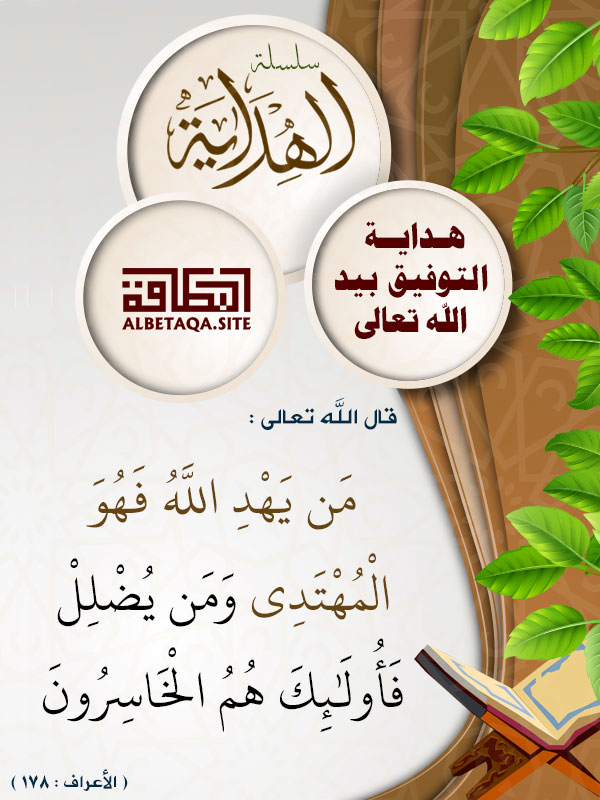 سلسلة
الهداية
هدايـــة
التوفيق بيد
الله تعالى
البطاقة
ALBETAQA.SITE
قال اللَّه تعالى :
مَن يَهْدِ اللَّهُ فَهُوَ
الْمُهْتَدِى وَمَن يُضْلِلْ
فَأُولَٰئِكَ هُمُ الْخَاسِرُونَ
( الأعراف : ١٧٨ )